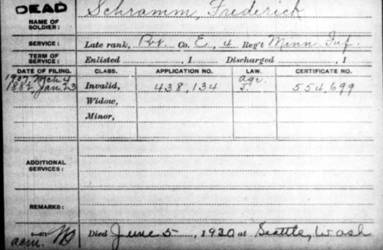 DEAD
NAME OF SOLDIER: Schramm, Frederick
SERVICE: Late rank, Pvt. Co. E, 4 Reg't Minn. Inf.
TERM OF SERVICE: Enlisted , 1 Discharged , 1
DATE OF FILING. CLASS. APPLICATION NO. LAW. CERTIFICATE NO.
1907, Mch 4 Age
1882, Jan. 23 Invalid, 438,134 554,699
Widow,
Minor,
ADDITIONAL SERVICES:
REMARKS:
Died June 5, 1920 at Seattle, Wash